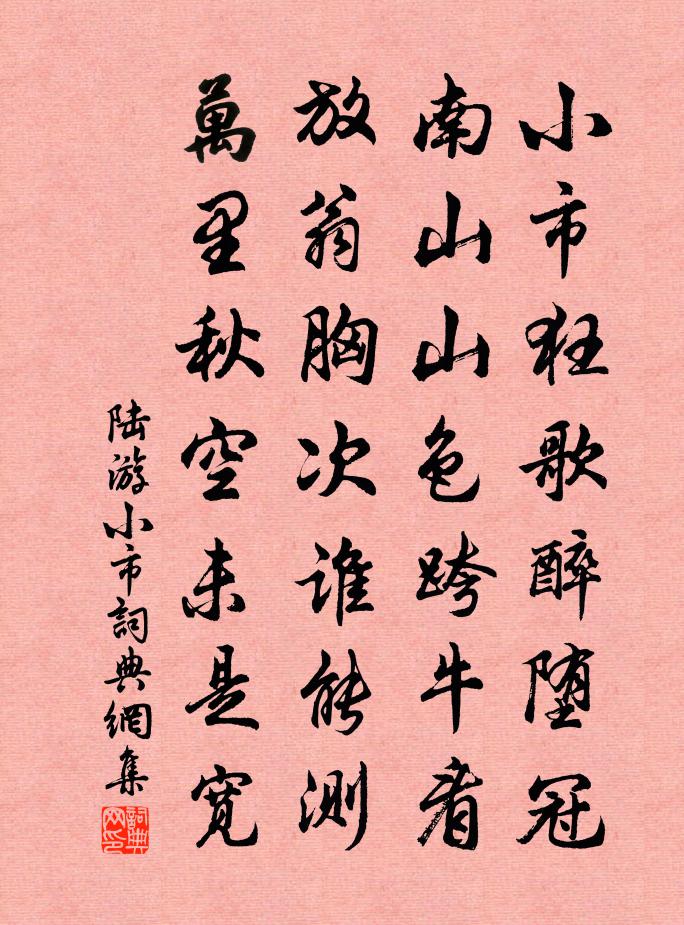 小市狂歌醉堕冠
南山山色跨牛看
放翁胸次谁能测
萬里秋空未是寬
陆游小市詞典網集
詞典网印